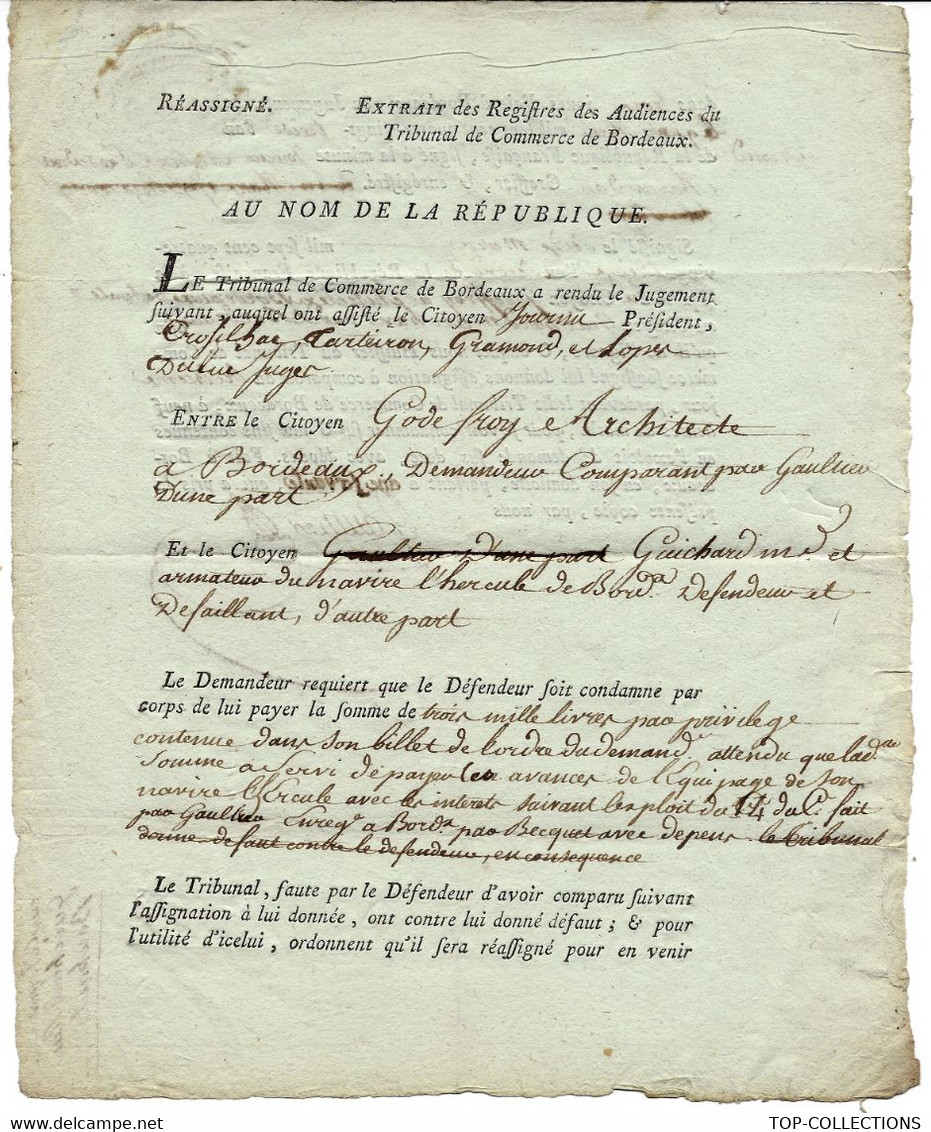 RÉASSIGNÉ. EXTRAIT des Regiſtres des Audiences du
Tribunal de Commerce de Bordeaux.
AU NOM DE LA RÉPUBLIQUE.
LE Tribunal de Commerce de Bordeaux a rendu le Jugement
ſuivant, auquel ont aſſiſté le Citoyen Journu Président,
Crosilhac, Carteiron, Gramond, et Lopes
Dubec juges.
ENTRE le Citoyen Godefroy Architecte
a Bordeaux, Demandeur Comparant par Gaultier
D'une part
Et le Citoyen Gaultier D'une part Guichard md. et
armateur du navire l'hercule de Bordx. Defendeur et
Defaillant, d'autre part
Le Demandeur requiert que le Défendeur ſoit condamne par
corps de lui payer la ſomme de trois mille livres par privilege
contenue dans son billet de l'ordre du demandr. attendu que lade.
Somme a Servi de payer les avances de l'Equipage de Son
navire l'Ercule avec les interets suivant l'exploit du 14 du Ct. fait
par Gaultier Enregé. a Bordx. par Becquet avec depens le tribunal
donne defaut contre le defendeur, en consequence
Le Tribunal, faute par le Défendeur d'avoir comparu ſuivant
l'aſſignation à lui donnée, ont contre lui donné défaut; & pour
l'utilité d'icelui, ordonnent qu'il ſera réaſſigné pour en venir
TOP-COLLECTIONS